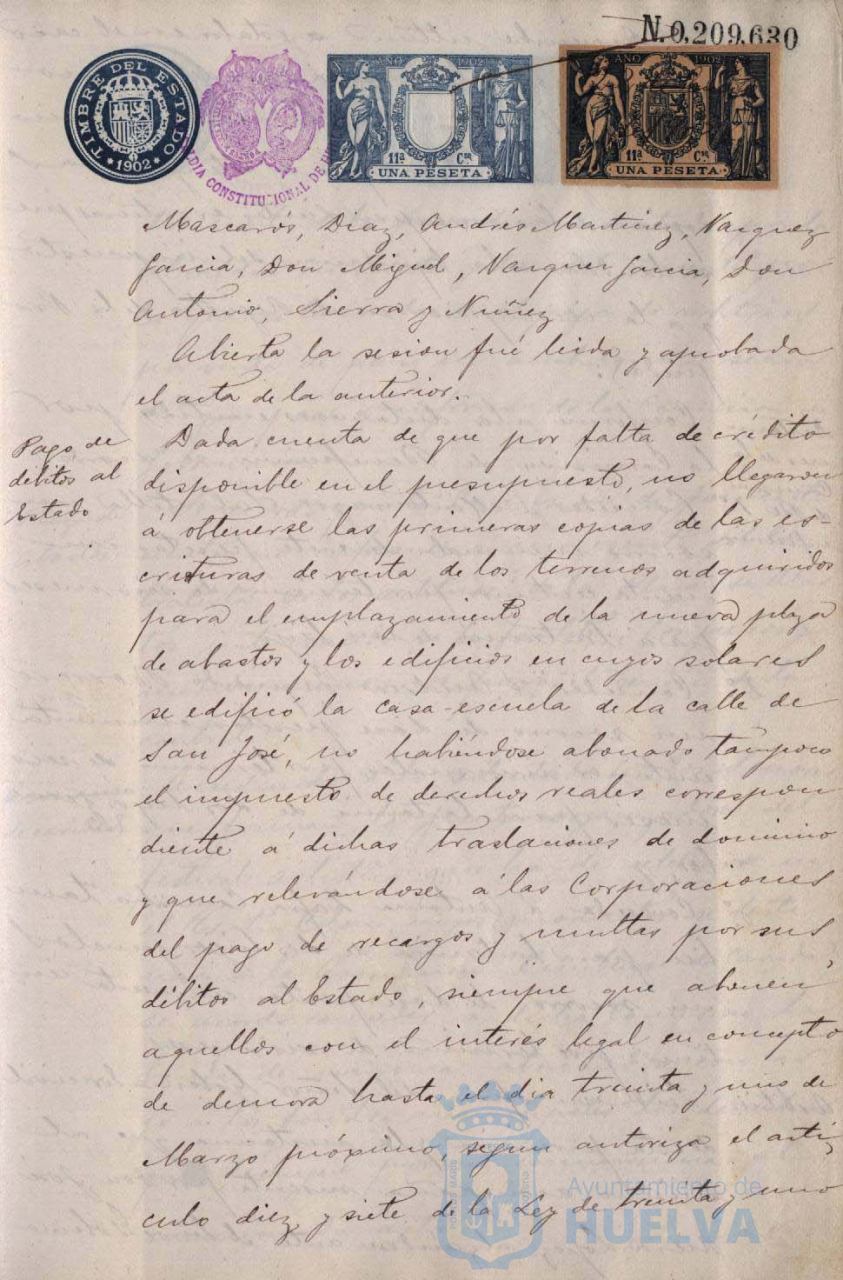 N.0,209,630
TIMBRE DEL ESTADO
* 1902 *
ALDIA CONSTITUCIONAL DE H
AÑO 1902
11ª Cª
UNA PESETA
AÑO 1902
11ª Cª
UNA PESETA
Mascarós, Diaz, Andrés Martinez, Vazquez
Garcia, Don Miguel, Vazquez Garcia, Don
Antonio, Sierra y Nuñez
Abierta la sesion fué leida y aprobada
el acta de la anterior.
Pago de
débitos al
Estado
Dada cuenta de que por falta de crédito
disponible en el presupuesto, no llegaron
á obtenerse las primeras copias de las es-
crituras de venta de los terrenos adquiridos
para el emplazamiento de la nueva plaza
de abastos y los edificios en cuyos solares
se edificó la casa-escuela de la calle de
San José, no habiéndose abonado tampoco
el impuesto de derechos reales correspon
diente á dichas traslaciones de dominio
y que relevándose á las Corporaciones
del pago de recargos y multas por sus
débitos al Estado, siempre que abonen
aquellos con el interés legal en concepto
de demora hasta el dia treinta y uno de
Marzo próximo, segun autoriza el arti
culo diez y siete de la Ley de treinta y uno
Ayuntamiento de
HUELVA